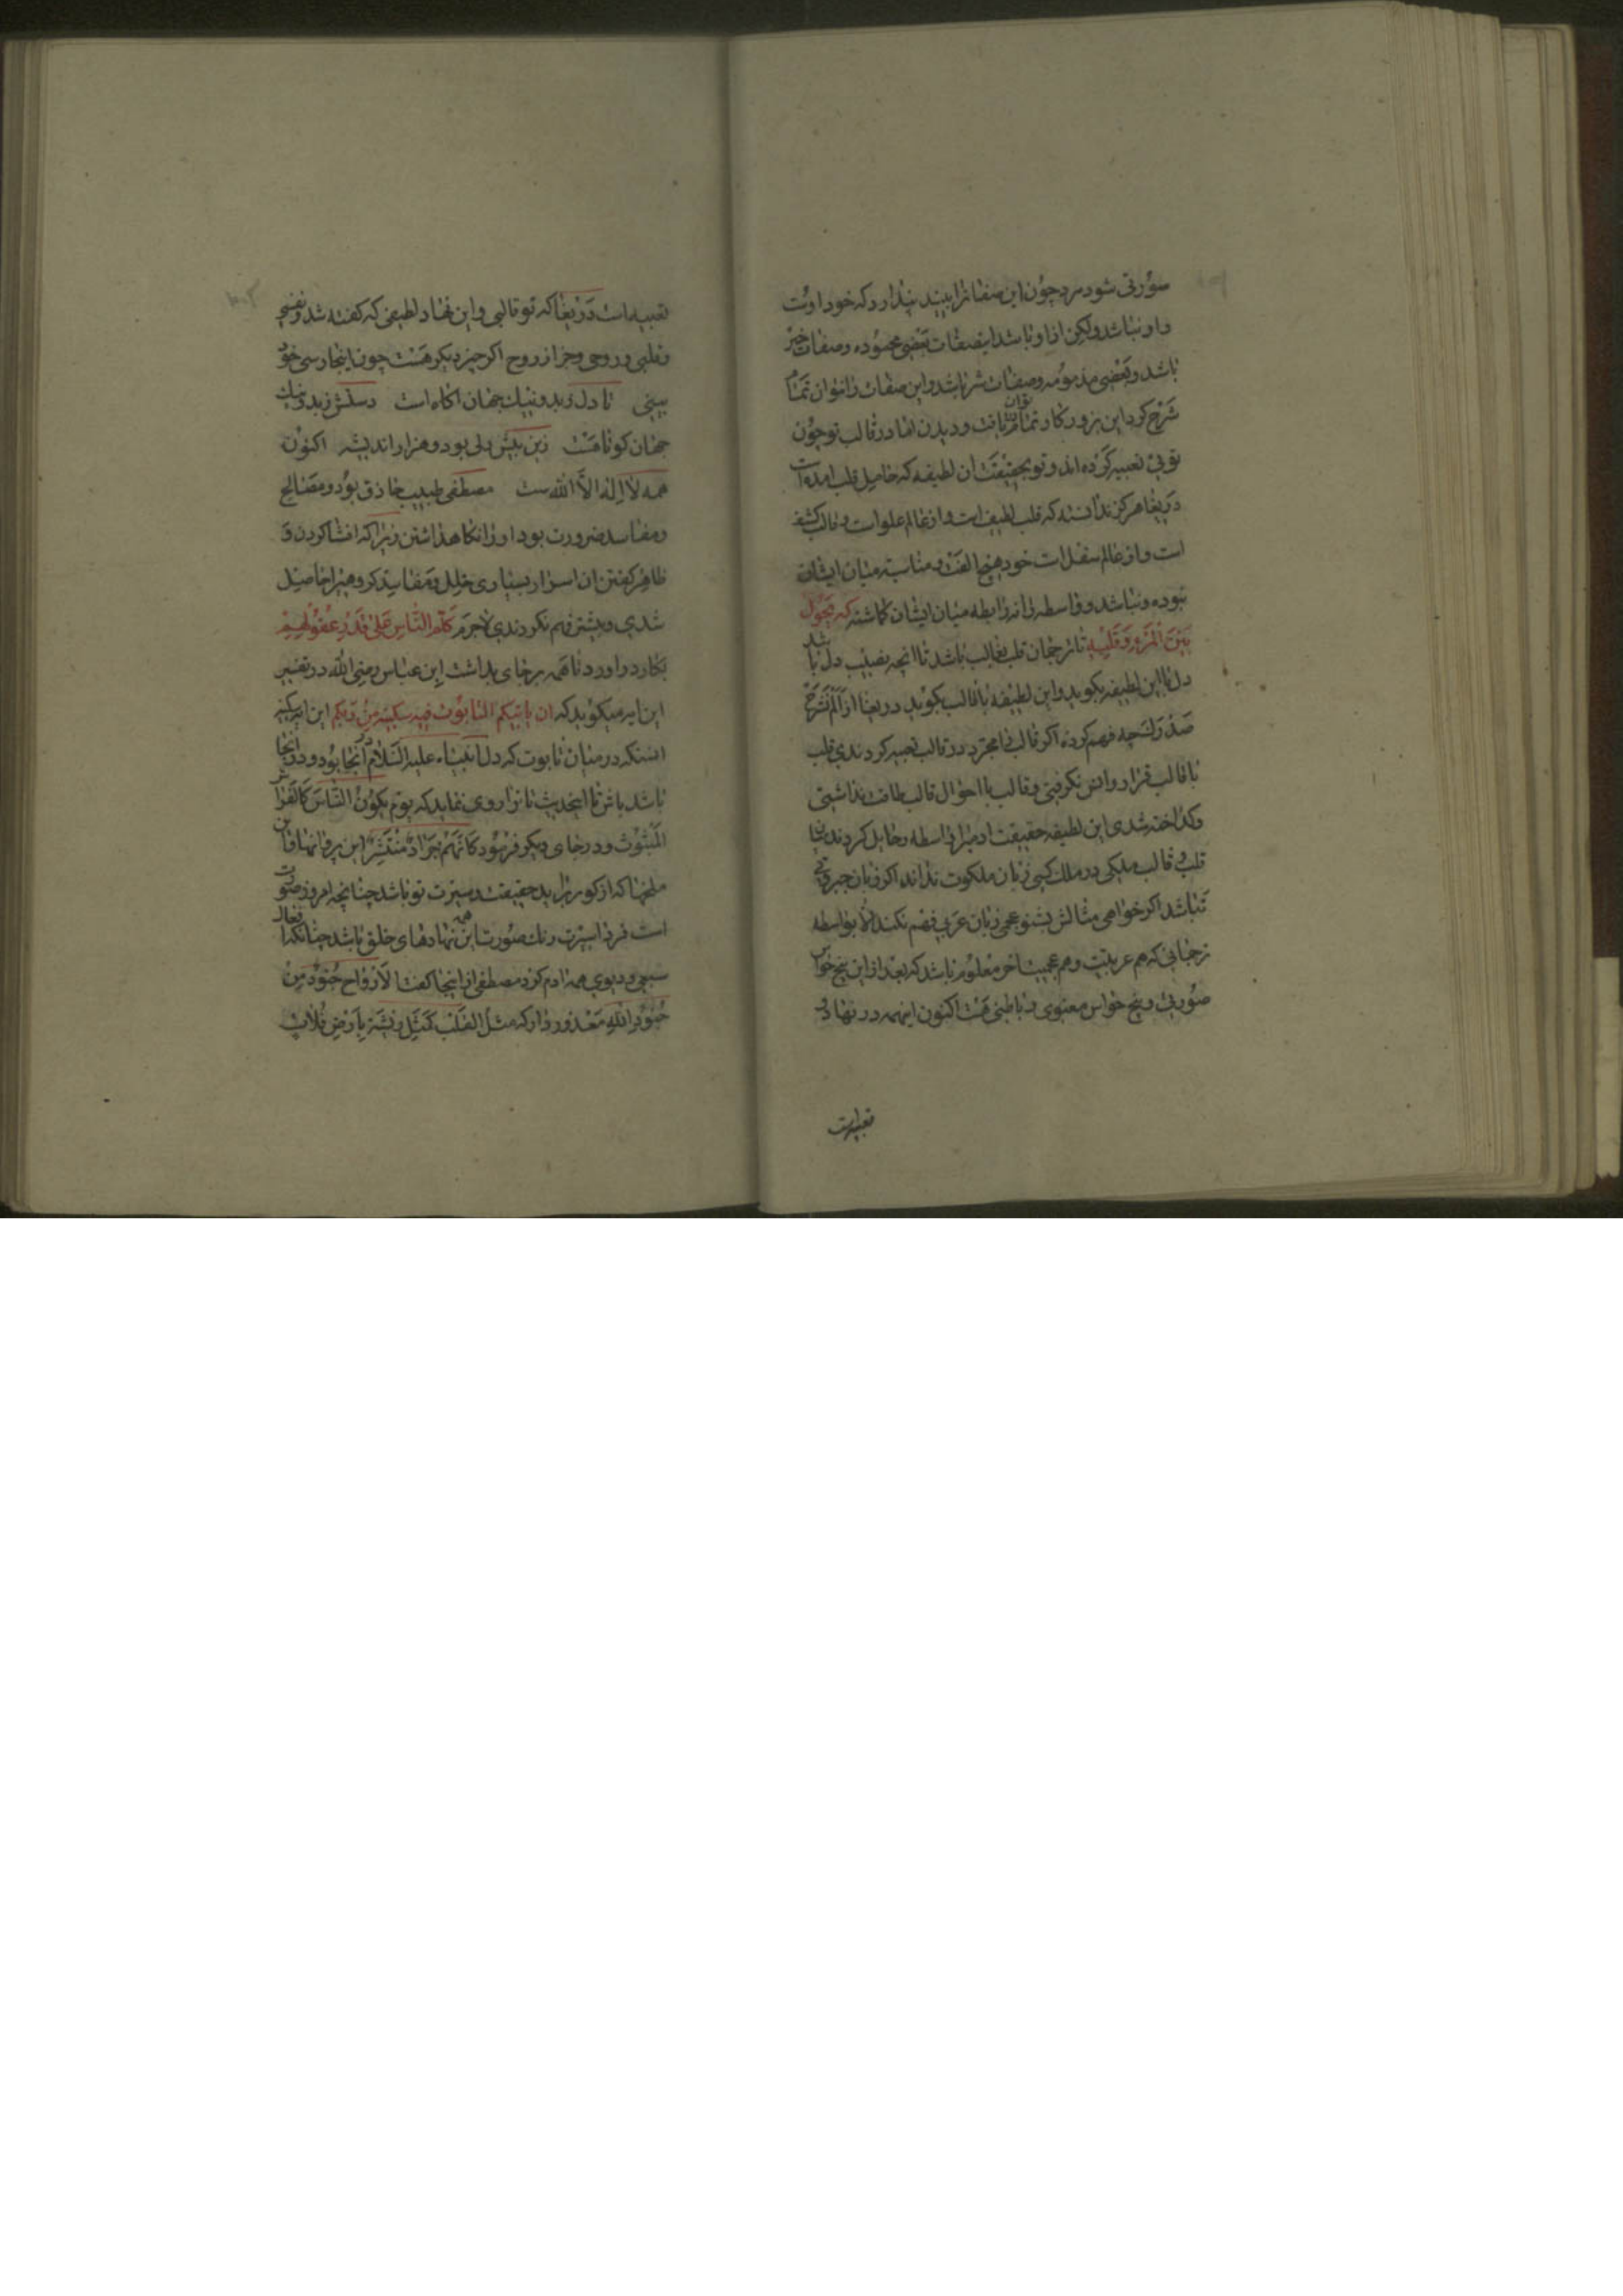 صورتی شود مرد چون این صفاترا بیند پندارد که خود اوست
و او نباشد ولیکن ازاو باشد اینصفات بعضی محموده وصفات خیر
باشد وبعضی مذمومه وصفات شر باشد واین صفات را نتوان تمام
شرح کرد این بروزکار تمام توان یافت ودیدن اما در قالب توچون
توئی تعبیه کرده اند وتو بحقیقت ان لطیفه که حامل قلب امده است
دریغا هرکز ندانسته که قلب لطیف است واز عالم علواست وقالب کثیف
است واز عالم سفل است خود هیچ الفت ومناسبت میان ایشان
نبوده ونباشد وواسطه ئی ورابطه میان ایشان کماشته که یحول
بین المرء وقلبه تا ترجمان قلب وقالب باشد تا انچه نصیب دل باشد
دل با این لطیفه بکوید واین لطیفه باقالب بکوید دریغا از الم نشرح
صدرک چه فهم کرده اکر قالب را مجرد در قالب تعبیه کردندی قلب
با قالب قرار وانس نکرفتی وقالب با احوال قالب طاقت نداشتی
وکداخته شدی این لطیفه حقیقت ادمرا واسطه وحایل کردند میان
قلب و قالب ملکی در ملک کسی زبان ملکوت نداند اکر زبان جبروتی
نباشد اکر خواهی مثالش بشنو عجمی زبان عربی فهم نکند الا بواسطه
ترجمانی که هم عربیت وهم عجمیت اخر معلومت باشد که بعد از این پنج حواس
صورتی وپنج حواس معنوی وباطنی هست اکنون اینهمه در نهاد تو
تعبیه است
تعبیه است دریغا که تو قالبی واین نهاد لطیفی که کفته شد ونفسی
وقلبی وروحی وجز از روح اکر چیز دیکر هست چون اینجا رسی خود
بینی تا دل زبد ونیک جهان اکاه است دستش زبد ونیک
جهان کوتاهست زین پیش دلی بود وهزار اندیشه اکنون
همه لا اله الا الله ست مصطفی طبیب حاذق بود ومصالح
ومفاسد ضرورت بود اورا نکاهداشتن زیرا که افشا کردن و
ظاهر کفتن ان اسرار بسیاری خلل ومفاسد کروهیرا حاصل
شدی وبیشتر فهم نکردندی لاجرم کلم الناس علی قدر عقولهم
بکار در اورد تا همه برجای بداشت ابن عباس رضی الله در تفسیر
این ایه میکوید که ان یاتیکم التابوت فیه سکینة من ربکم این سکینه
انستکه در میان تابوت که دل انبیاء علیه السلام در آنجا بود ودر اینجا
باشد باش تا اینحدیث تا ترا روی نماید که یوم یکون الناس کالفراش
المبثوث ودر جای دیکر فرمود کانهم جراد منتشر این پروانها واین
ملخها که از کور برآید حقیقت وسیرت تو باشد چنانچه امروز صورت
است فردا سیرت رنک صورت این همه نهادهای خلق باشد چنانکه افعال
سبعی ودیوی همه ادم کرد مصطفی از اینجا کفت الارواح جنود من
جنود الله معذور دار که مثل القلب کمثل ریشة بارض فلات